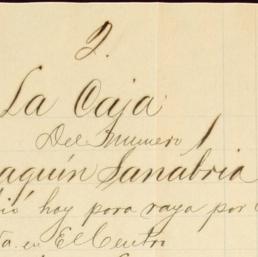 2.
La Caja
Del Numero 1
aquín Sanabria
ió hoy para raya por
ta. en El Centro